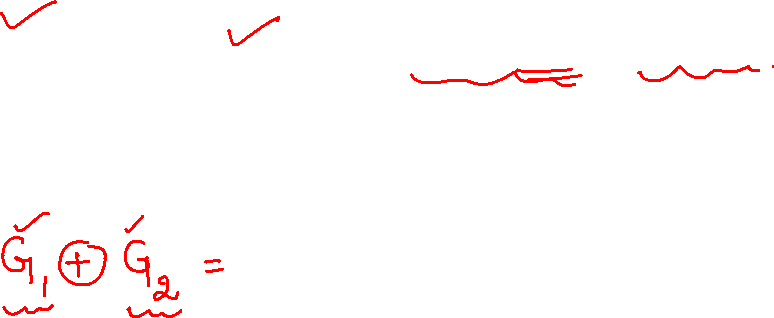 G₁ ⊕ G₂ =